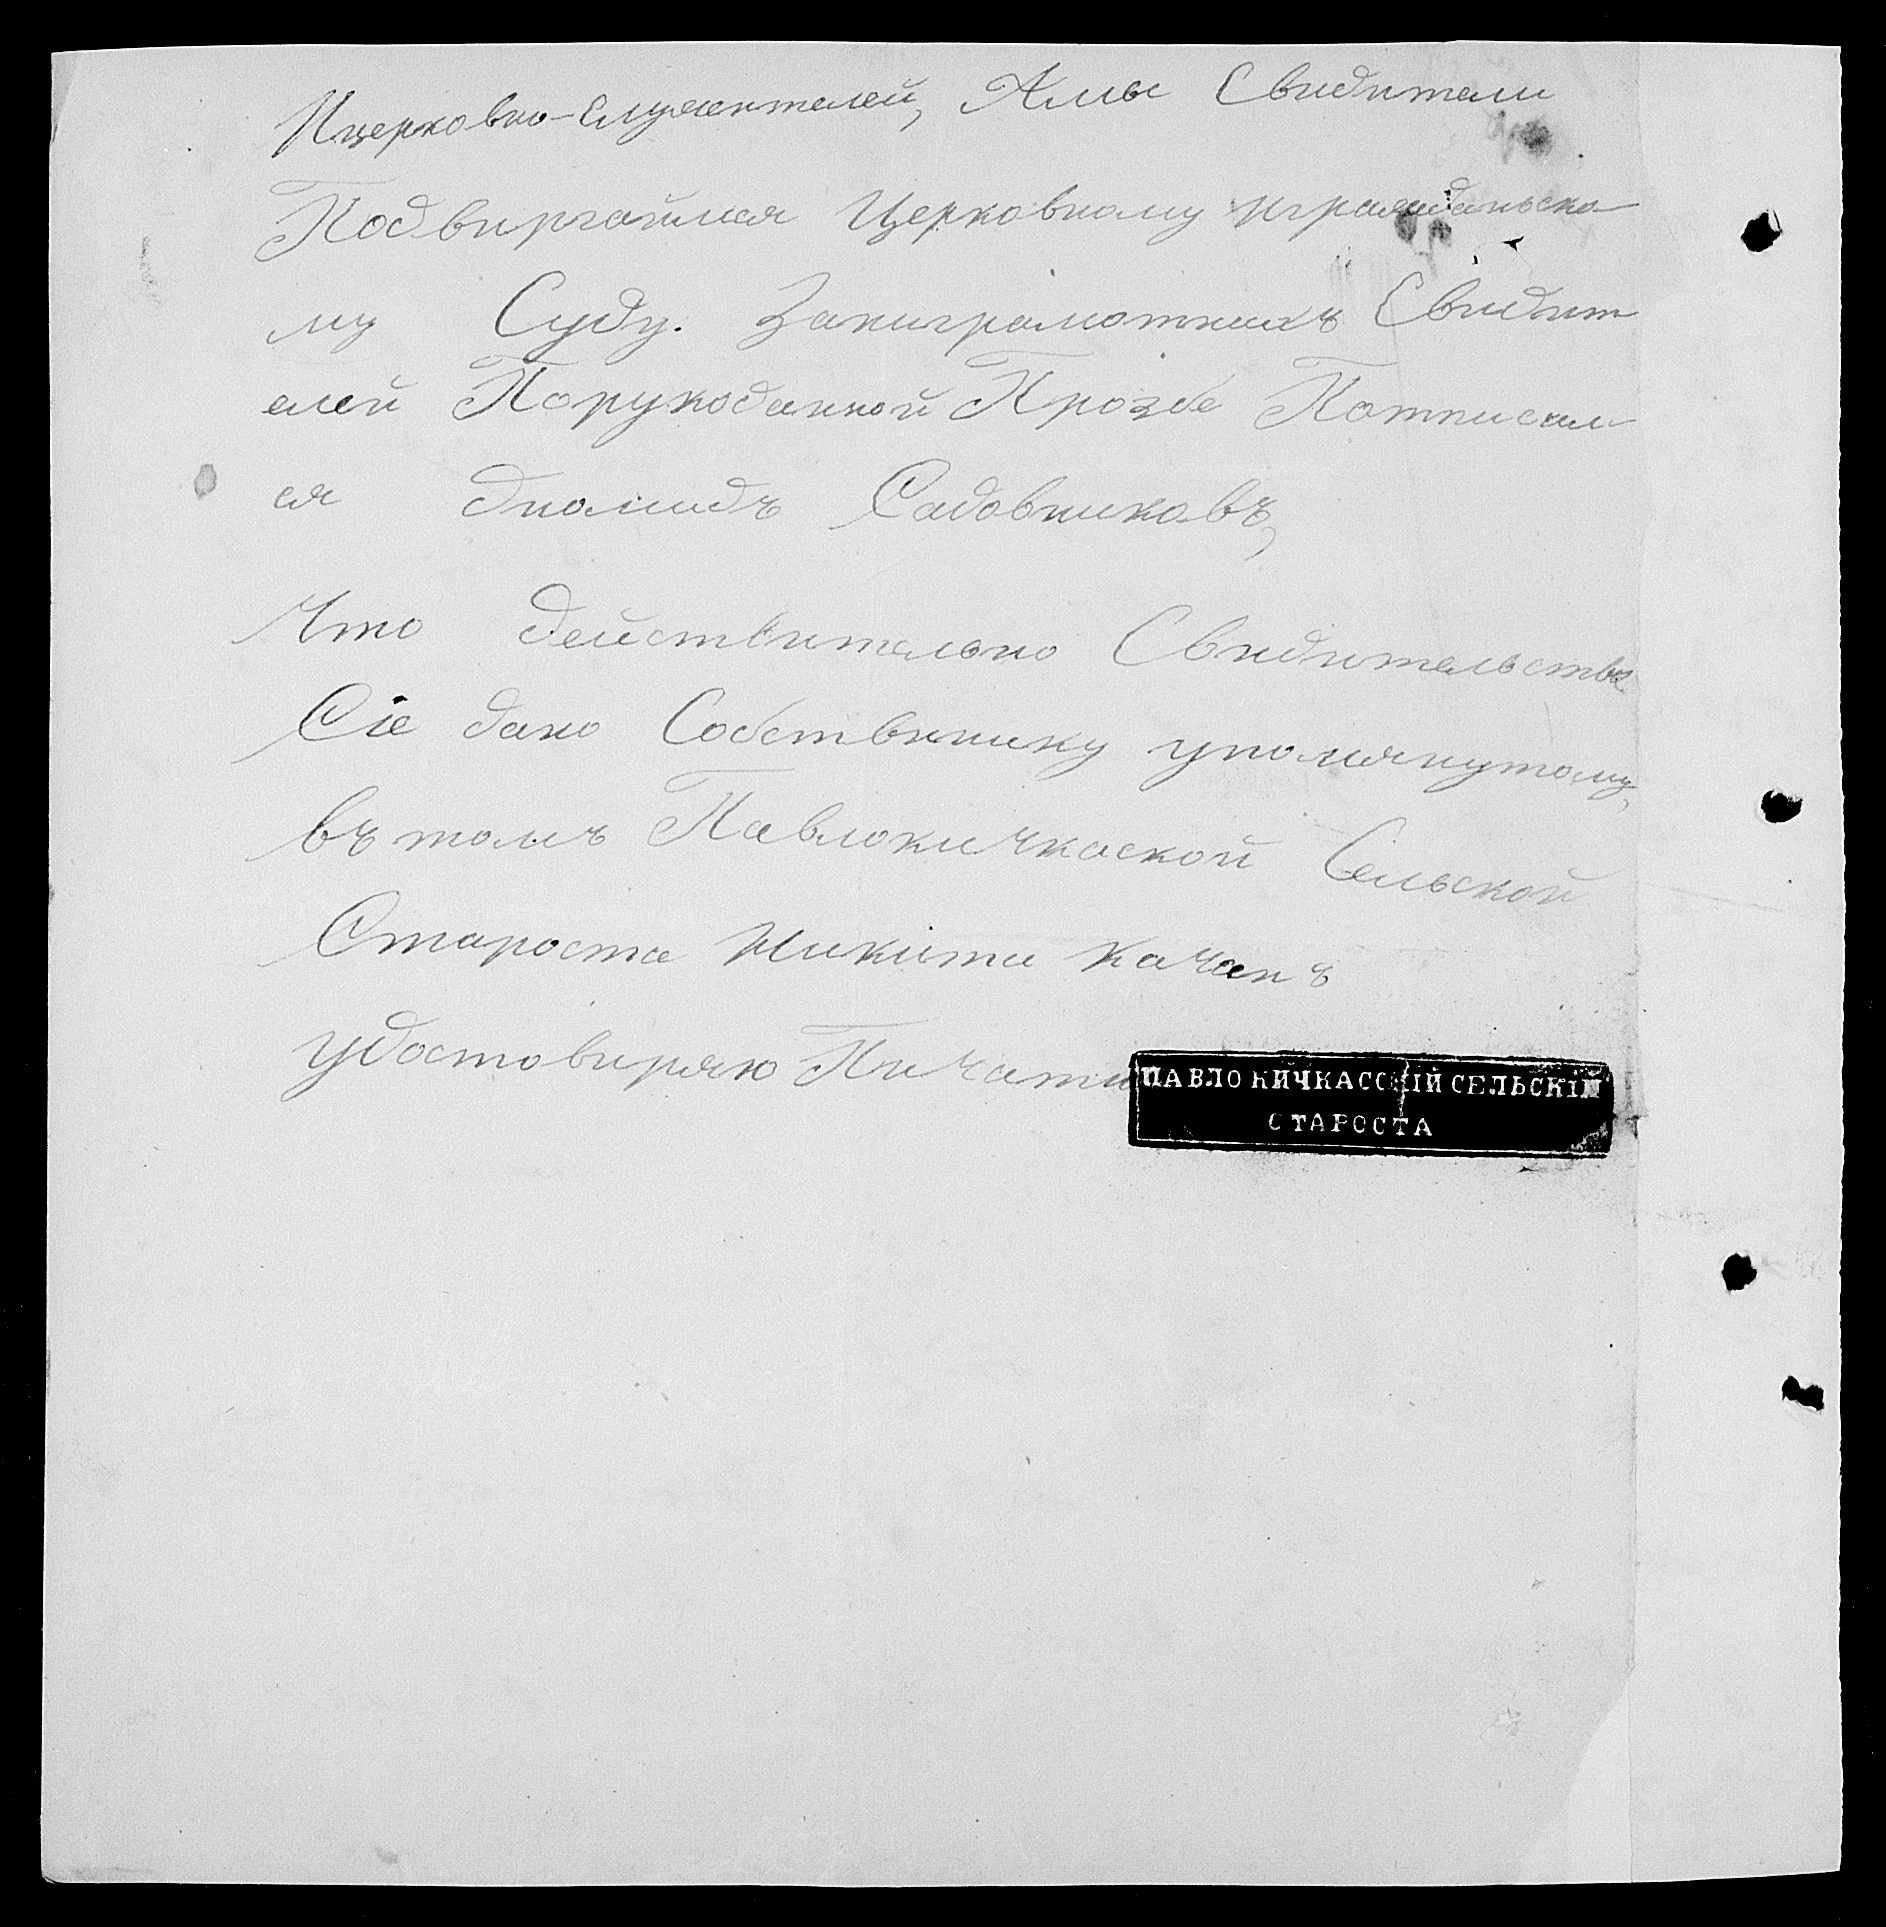 Ицерковно-Служителей, Амы Свидители
Подвиргаймся Церковному играждальско-
му Суду. Заниграмотныхъ Свидит
елей Порукоданной Прозбе Потписал-
ся диомидъ Садовниковъ,
Что действительно Свидительство
Сіе дано Собствинику упомянутому,
въ томъ Павлокичкаской Сельской
Староста Никита Качанъ
удостовиряю Пичати
ПАВЛОКИЧКАССКІЙ СЕЛЬСКІЙ
СТАРОСТА